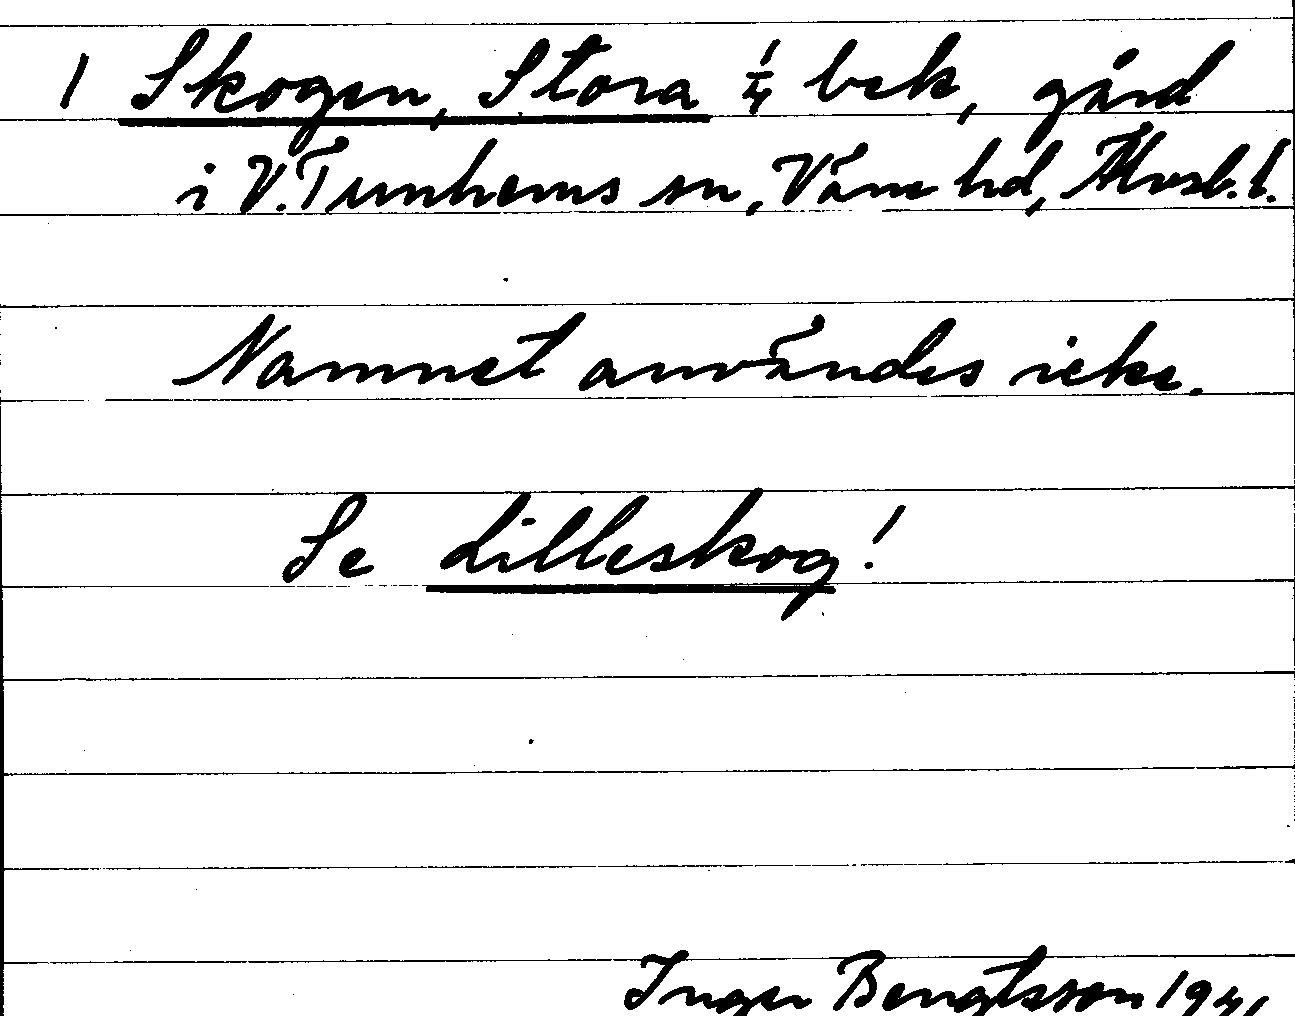 1 Skogen, Stora 1/4 bek, gård
i V. Tunhems sn, Väne hd, Älvsb. l.
Namnet användes icke.
Se Lilleskog!
Inger Bengtsson 1941